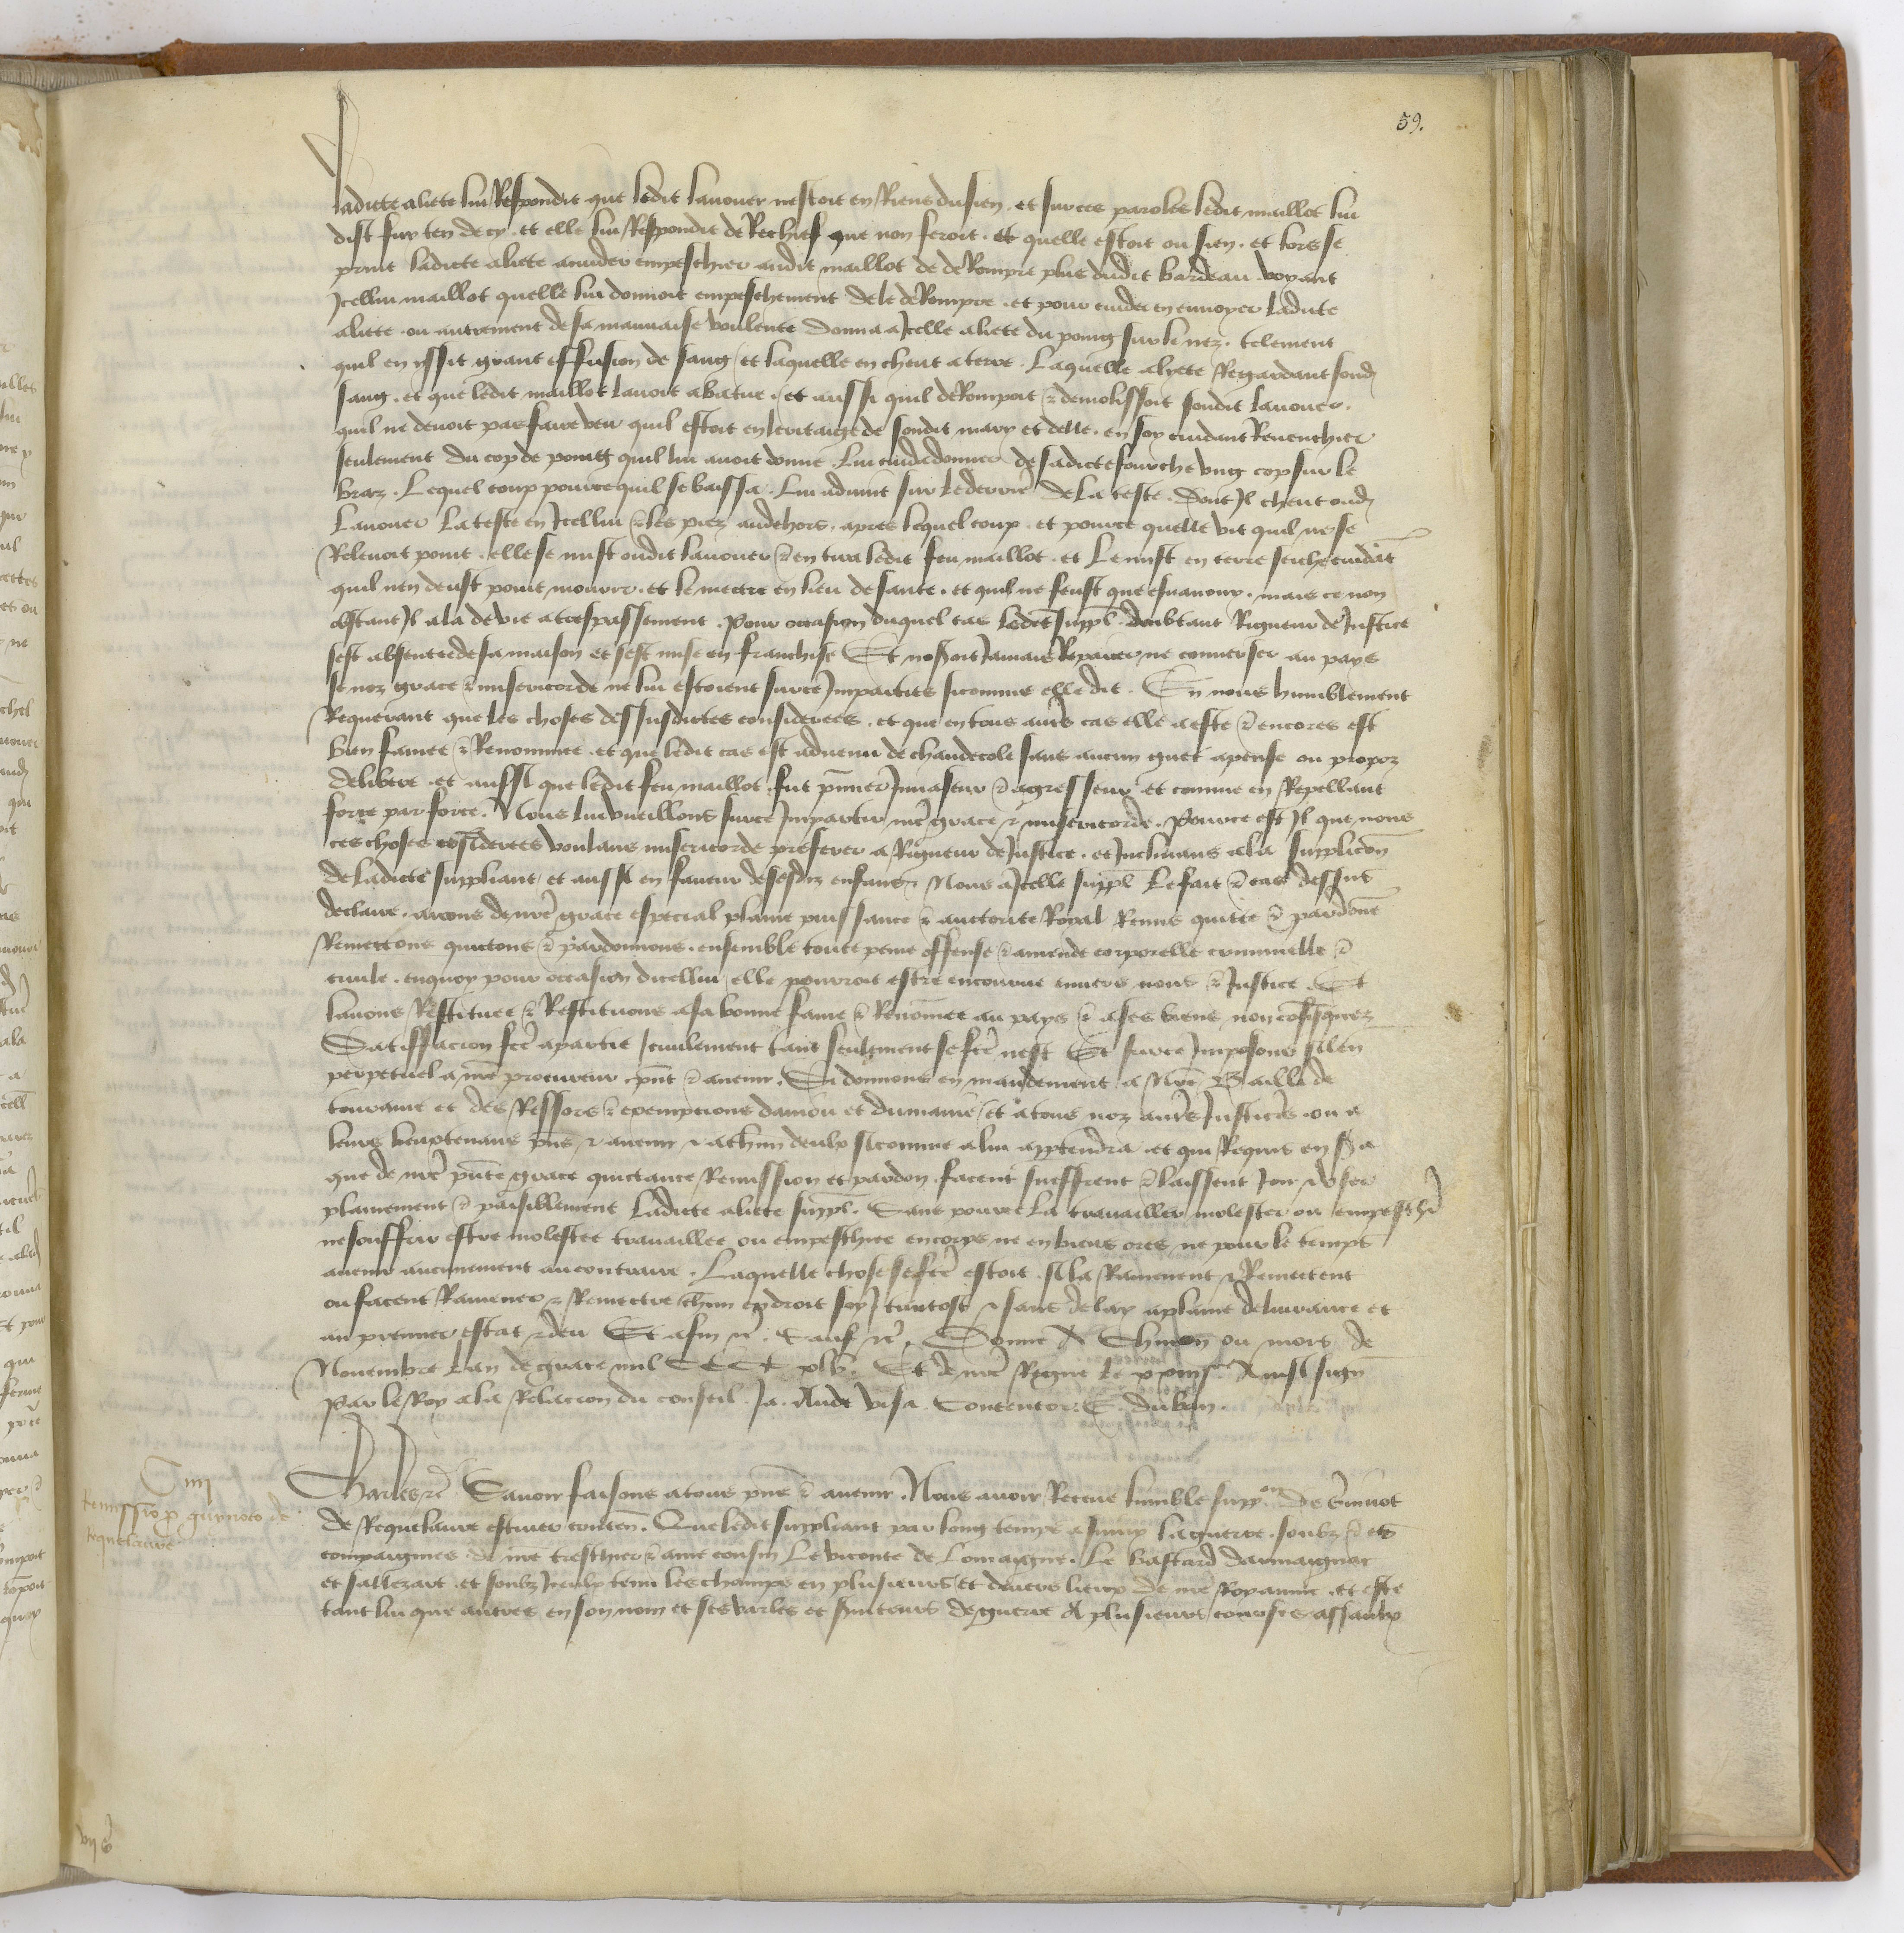 59.
ladicte aliete lui Respondit que ledit lavouer nestoit en Riens du sien . et sur ces paroles ledit maillot lui
dist fuy ten de cy . et elle lui Respondit de Rechief que non feroit . et quelle estoit ou sien . et lors se
print ladicte aliete a cuider empeschier audit maillot de deRompre plus dudit bardeau . voyant
Icellui maillot quelle lui donnoit empeschement de le deRompre . et pour cuider en envoyer ladicte
aliete ou autrement de sa mauvaise voulente donna a Icelle aliete du poing sur le nez . telement
quil en yssit grant effusion de sang / et laquelle en cheut a terre . Laquelle alyete Regardant sond
sang . et que ledit maillot lavoit abatue . et aussi quil deRompoit & demolissoit sondit lavouer .
quil ne devoit pas faire veu quil estoit en leritaige de sondit mary et delle . en soy cuidant Revenchier
seulement du cop de poing quil lui avoit donne . Lui cuida donner de sadicte fourche ung cop sur le
braz . Lequel coup pource quil se baissa . Lui advint sur le derrie de la teste . dont Il cheut oud
Lavouer La teste en Icellui & les piez au dehors . apres lequel coup . et pource quelle vit quil ne se
Relevoit point . elle se mist oudit lavouer & en tira ledit feu maillot . et Le mist en terre seiche cuidat
quil nen deust point mourir . et le mectre en lieu de sante . et quil ne feust que esvanouy . mais ce non
obstant Il ala de vie a trespassement . Pour occasion duquel cas ladcte suppl . doubtant Rigueur de Justice
sest absentee de sa maison et sest mise en franchise Et noseroit Jamais Reparer ne converser au pays
se noz grace & misericorde ne lui estoient sur ce Imparties sicomme elle dit . En nous humblement
Requerant que les choses dessusdictes considerees . et que en tous aut's cas elle a este & encores est
bien famee & Renommee . et que ledit cas est advenu de chaudecole sans aucun guet apense ou propoz
delibere . et aussi que ledit feu maillot . fut p'mier Invaseur & agresseur et comme en Repellant
force par force . Nous lui vueillons sur ce Impartir nre grace & misericorde . Pource est Il que nous
ces choses cosiderees voulans misericorde preferer a Rigueur de Justice . et Inclinans a la supplicon
de ladicte suppliant / et aussi en faveur de sesdiz enfans . Nous a Icelle suppl Le fait & cas dessus
declaire . avons de nre grace especial plaine puissance & auctorite Royal Remis quitte & pardone
Remectons quictons & pardonnons . ensemble toute peine offense & amende corporelle criminelle &
civile . en quoy pour occasion dicellui elle pourroit estre encourue envers nous & Justice . Et
lavons Restituee & Restituons a sa bonne fame & Renomee au pays & a ses biens non cofisquez
Satiffacion fce a partie / civilement tant seulement se fce nest Et sur ce Imposons silen
perpetuel a nre procureur pnt & avenir . Si donnons en mandement a Nre Bailli de
touraine et des Ressors & exempcions daniou et du maine / et a tous noz aut's Justiciers . ou a
leurs lieuxtenans pns & avenir & a chun deulx sicomme a lui apptendra . et qui Requis en sa
que de nre pnte grace quictance Remission et pardon . facent sueffrent & laissent Joir & user
plainement & paisiblement Ladicte aliete suppl . Sans pource La travailler molester ou empeschi
ne souffrir estre molestee travaillee ou empeschiee en corps ne en biens ores ne pour le temps
avenir aucunement au contraire . Laquelle chose se fce estoit . si la Ramenent & Remectent
ou facent Ramener & Remectre / chun en droit soy / tantost & sans delay a plaine delivrance et
au premier estat & deu Et afin &c . Sauf &c . Donne A Chinon ou mois de
Novembre Lan de grace mil CCCC xlv . Et de nre Regne le xxiiije Ainsi sign
Par le Roy a la Relacion du conseil . Ja . Aude Visa . Contentor . E . duban .
iiij
Remissio p guynoto de
Requelaure
Charles &c . Savoir faisons a tous pns & avenir . Nous avoir Receue lumble suppon de Guinot
de Requelaure escuier conten . Que ledit suppliant par long temps a suivy la guerre . soubz & es
compaignies de nre treschier & ame cousin Le viconte de Lomaigne . Le bastard darmaignac
et sallezart . et soubz Iceulx tenu les champs en plusieurs / et divers lieux de nre Royaume . et este
tant lui que autres en son nom et ses varles et serviteurs de guerre A plusieurs courses assaulx